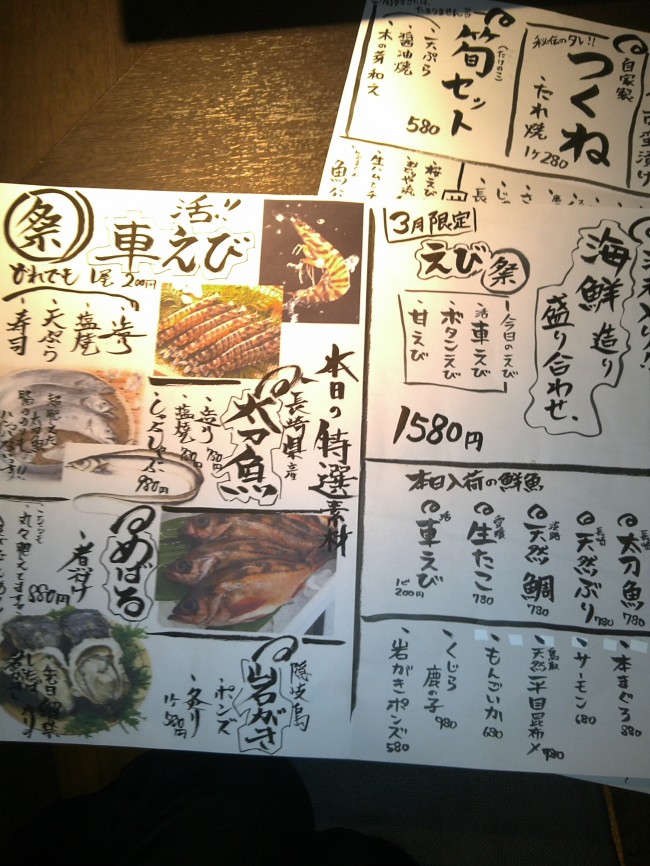 筍セット
(たけのこ)
・天ぷら
・醤油焼
・木の芽和え
580
自家製
秘伝のタレ!!
つくね
・たれ焼
1ケ280
祭
活!!
車えび
どれでも 1尾 200円
・造り
・塩焼
・天ぷら
・寿司
本日の特選素材
長崎県産
太刀魚
・造り
・塩焼
・しゃぶしゃぶ
980円
めばる
・煮付け
880円
隠岐島
岩がき
・ポンズ
・炙り
1ケ580円
3月限定
えび祭
今日のえび
・活車えび
・ボタンえび
・甘えび
海鮮造り
盛り合わせ、
1580円
本日入荷の鮮魚
長崎
太刀魚
780
長崎
天然ぶり
780
淡路
天然鯛
780
愛媛
生たこ
780
活
車えび
1ピ
200円
・本まぐろ
880
・サーモン
680
・鳥取
天然平目昆布〆
780
・もんごいか
680
・くじら
鹿の子
980
・岩がきポンズ
580